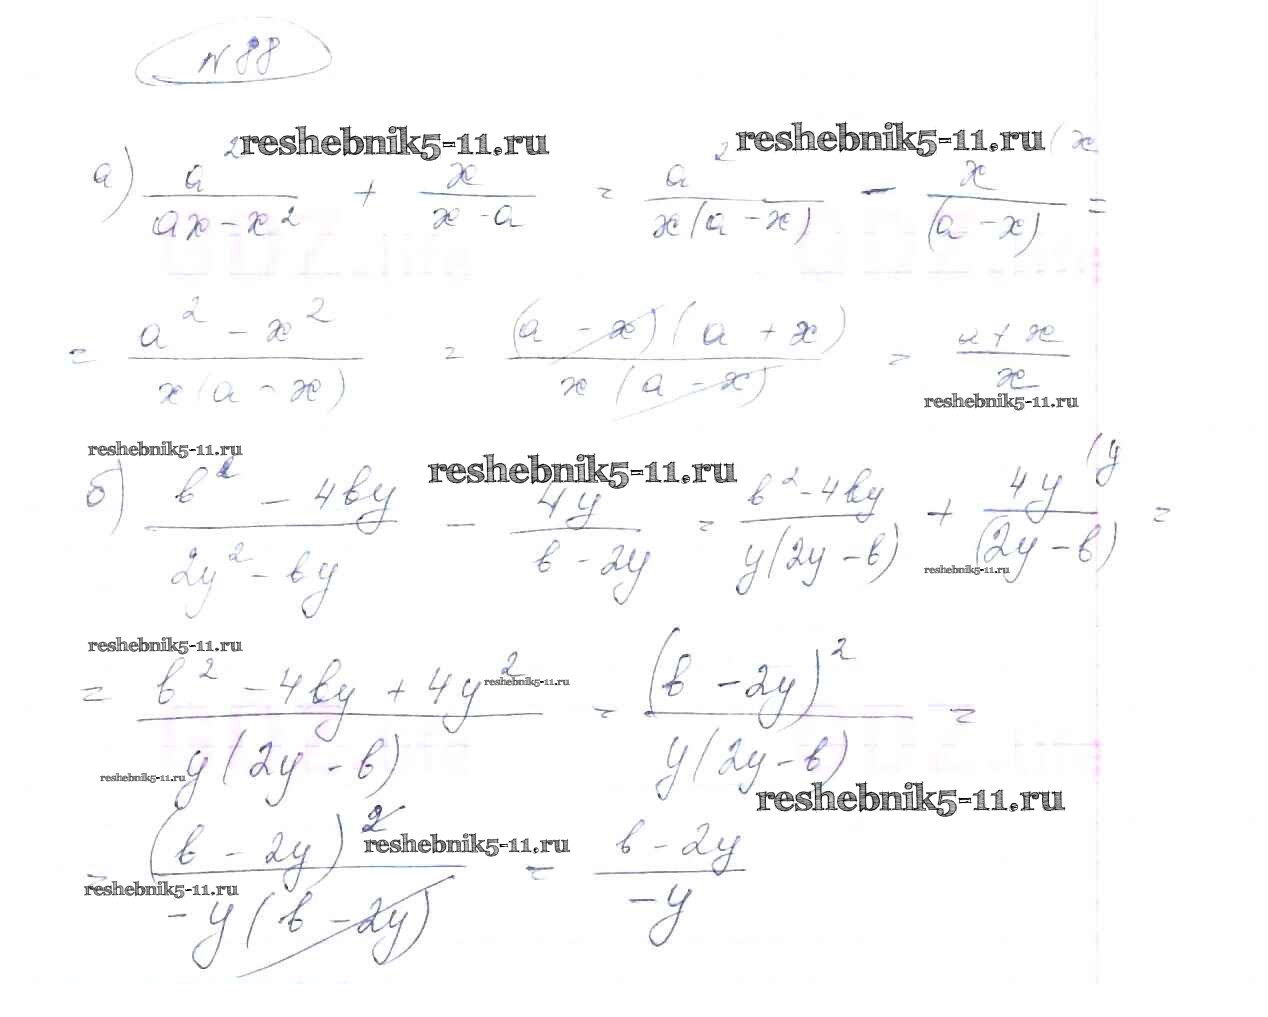 N 88
reshebnik5-11.ru reshebnik5-11.ru
а) a²/(ax - x²) + x/(x - a) = a²/(x(a - x)) - x/(a - x) (x =
= (a² - x²)/(x(a - x)) = ((a - x)(a + x))/(x(a - x)) = (a + x)/x
reshebnik5-11.ru
reshebnik5-11.ru reshebnik5-11.ru
б) (b² - 4by)/(2y² - by) - 4y/(b - 2y) = (b² - 4by)/(y(2y - b)) + 4y/(2y - b) (y =
reshebnik5-11.ru
reshebnik5-11.ru
= (b² - 4by + 4y²)/(y(2y - b)) = (b - 2y)²/(y(2y - b)) =
reshebnik5-11.ru
reshebnik5-11.ru
reshebnik5-11.ru
= (b - 2y)²/(-y(b - 2y)) = (b - 2y)/(-y)
reshebnik5-11.ru
reshebnik5-11.ru